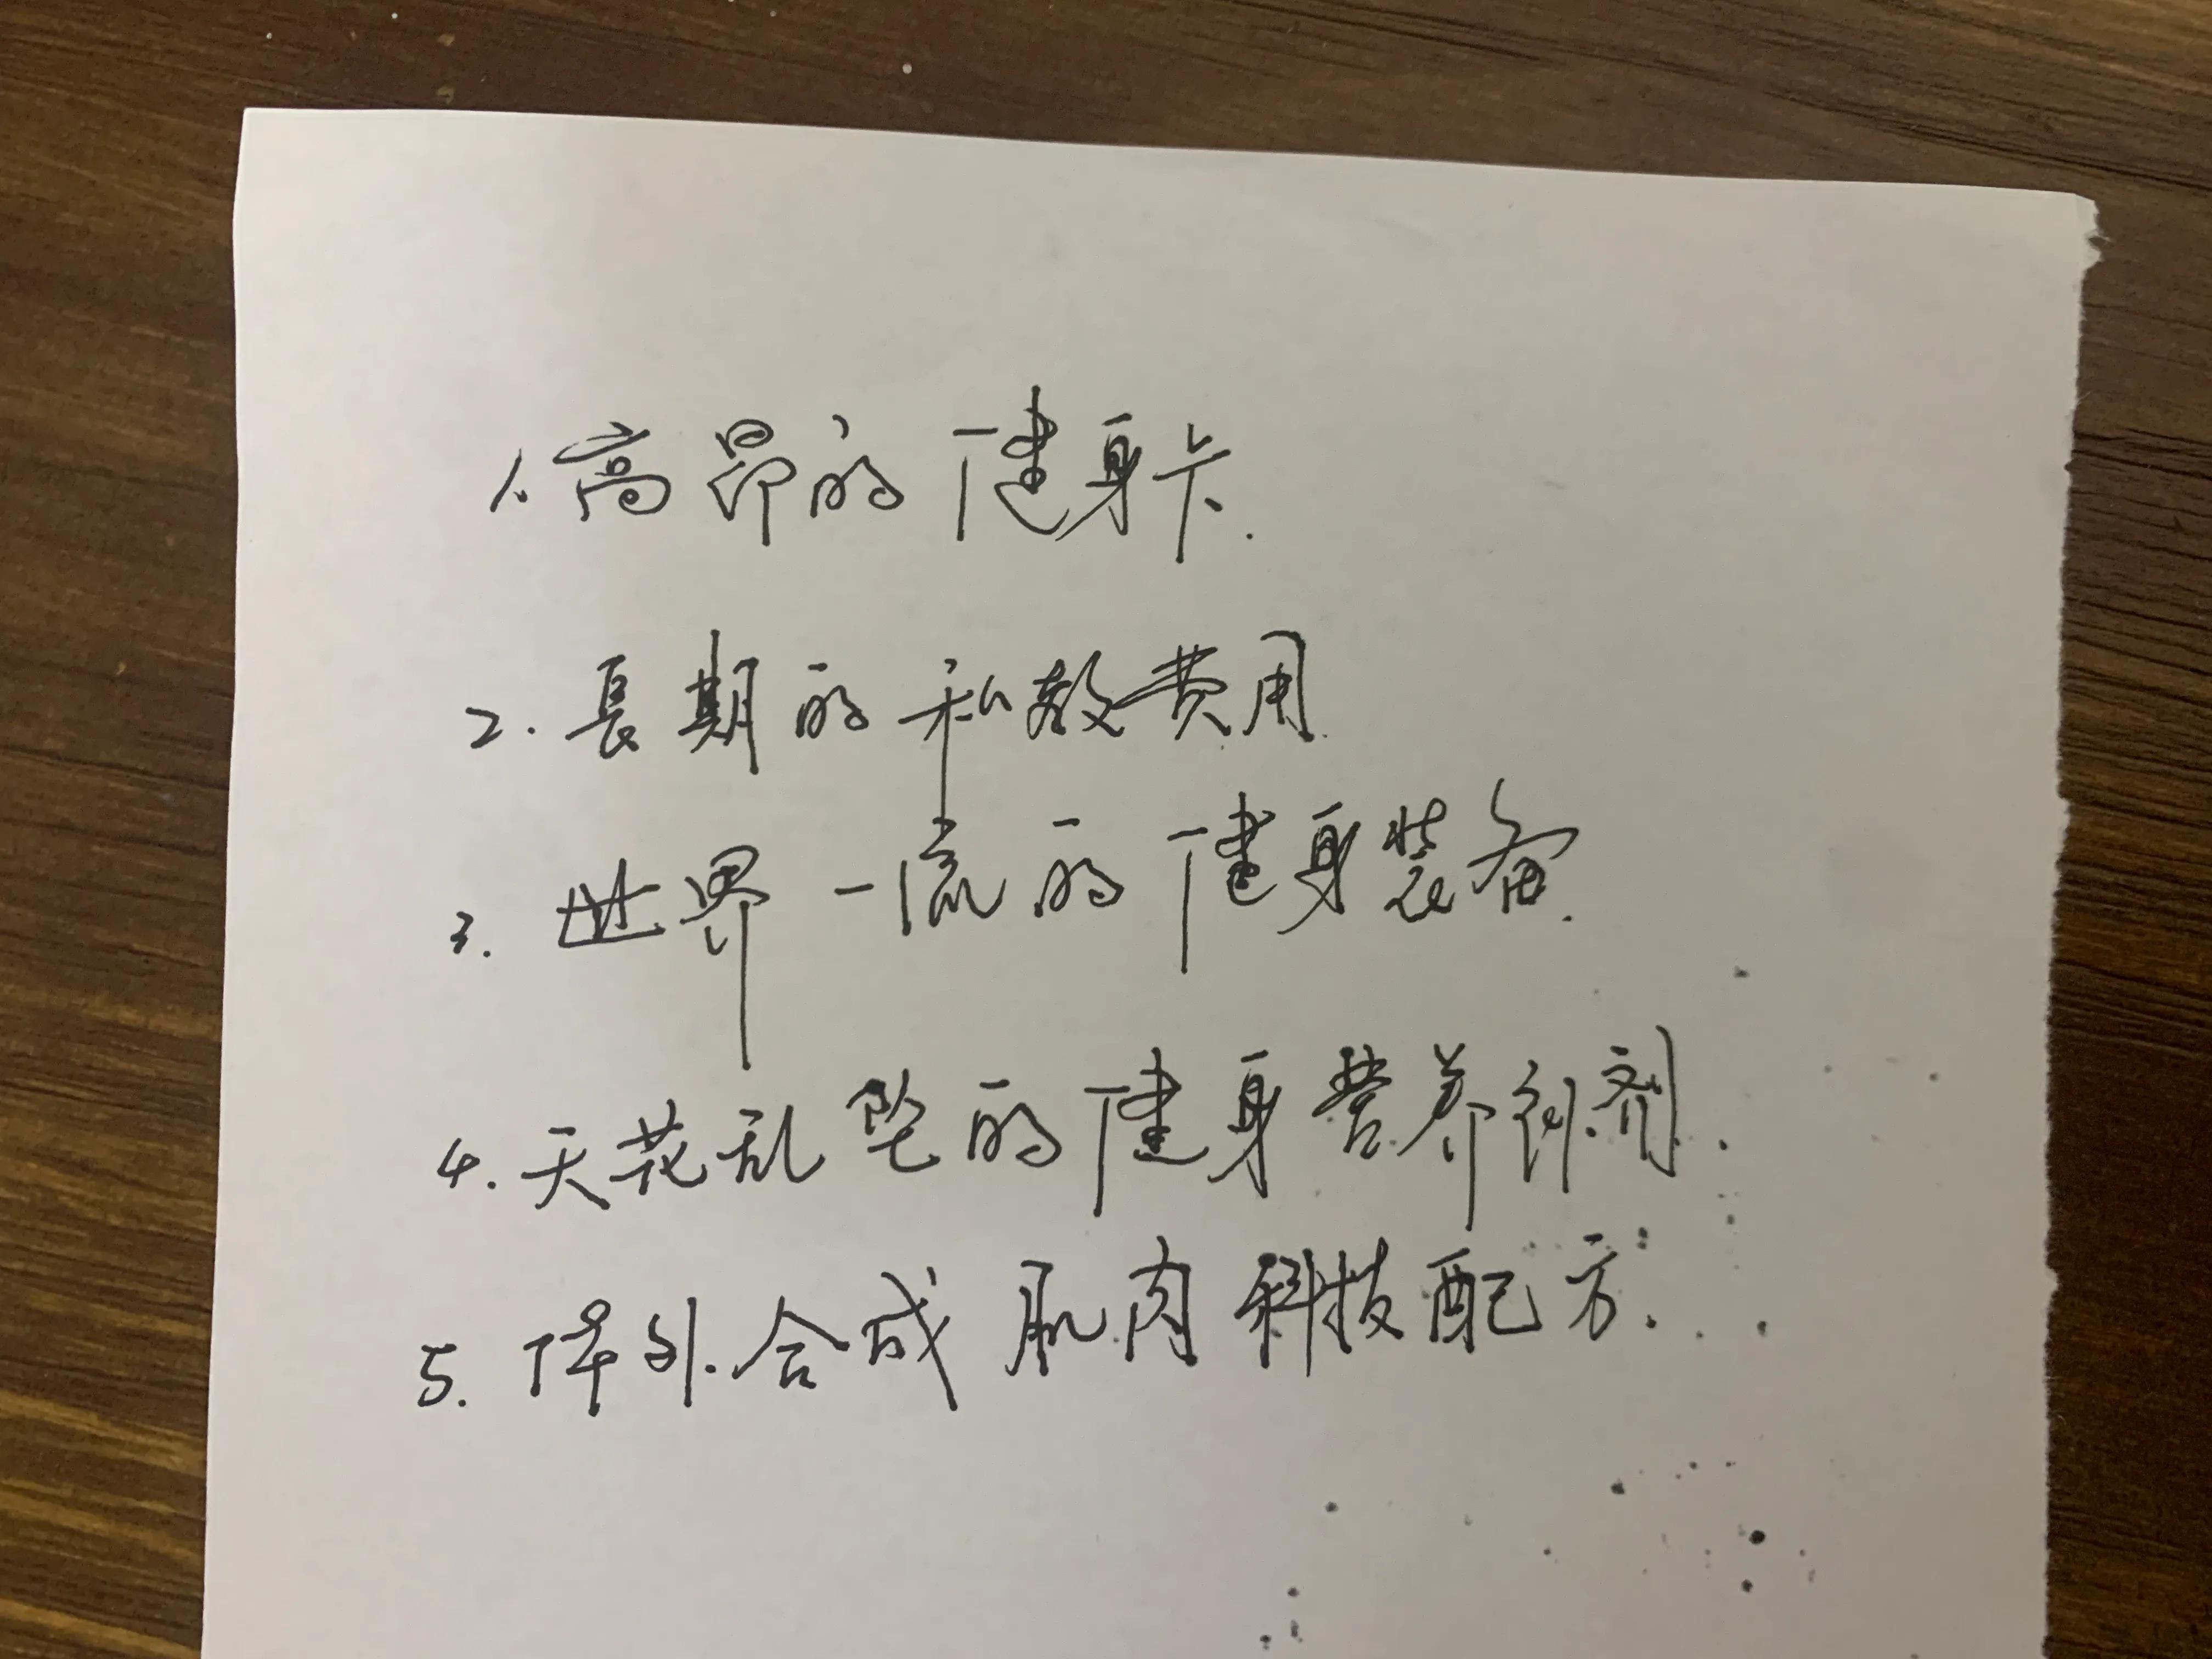 1. 高昂的健身卡.
2. 長期的私教费用.
3. 世界一流的健身装备.
4. 天花乱坠的健身营养补剂.
5. 体外合成肌肉科技配方.